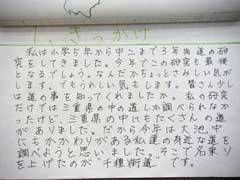 1. きっかけ
私は小学5年から中二まで3年街道の研
究をしてきました。今年でこの研究も最後
となるでしょう。なんだかちょっとさみしい気が
します。でもうれしい気もします。皆さん少し
は道の事を知ってくれましたか。私の研究
だけでは三重県の中の道しか調べられなか
ったけど、三重県の中にもたくさんの道
がありました。だから今年は大池中
にもかかわりがある私達の身近な道を
調べようと思いました。そこで名乗り
を上げたのが"千種街道"です。